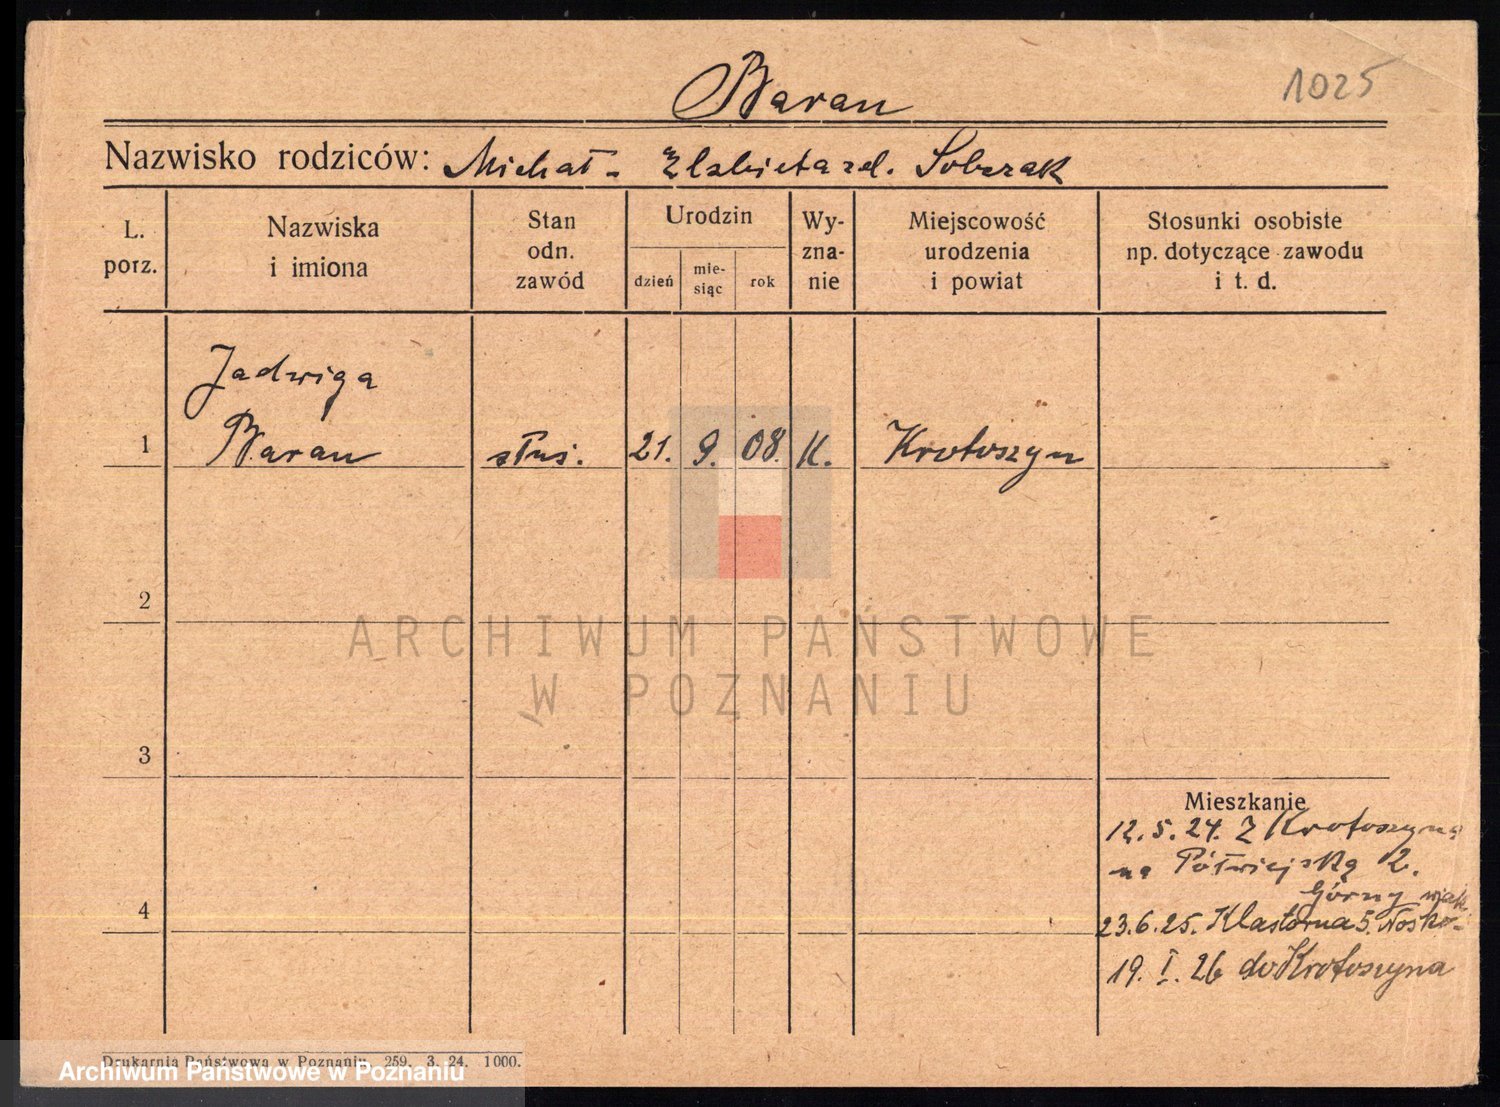 Baran
1025
Nazwisko rodziców: Michał - Elzbieta zd. Sobczak
L. porz.
Nazwiska i imiona
Stan odn. zawód
Urodzin
dzień
mie-
siąc
rok
Wy-
zna-
nie
Miejscowość
urodzenia
i powiat
Stosunki osobiste
np. dotyczące zawodu
i t. d.
Jadwiga
1 Baran służ. 21. 9. 08. K. Krotoszyn
2
3
4
Mieszkanie
12.5.24. Z Krotoszyna
na Półwiejską 2.
Górny
23.6.25. Klasztorna 5.
19. I. 26 do Krotoszyna
ARCHIWUM PAŃSTWOWE
W POZNANIU
Drukarnia Państwowa w Poznaniu 259. 3. 24. 1000.
Archiwum Państwowe w Poznaniu